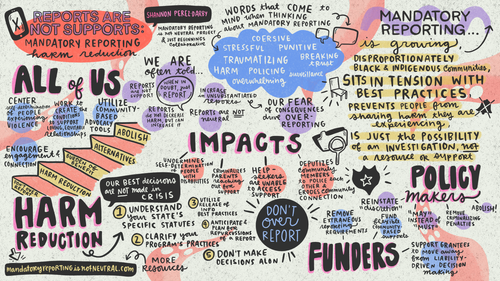 REPORTS ARE
NOT SUPPORTS:
MANDATORY REPORTING
harm reduction
SHANNON PEREL-DARBY
MANDATORY REPORTING
is NOT NEUTRAL PROJECT
& JUST BEGINNINGS
Collaborative
WORDS that COME to
MIND when THINKING
about MANDATORY REPORTING
COERSIVE
STRESSFUL PUNITIVE
TRAUMATIZING
BREAKING
trust
HARM POLICING
surveillance
overwhelming
MANDATORY
REPORTING...
is growing
DISPROPORTIONATELY
BLACK & INDIGENOUS COMMUNITIES,
SITS IN TENSION WITH
BEST PRACTICES.
PREVENTS PEOPLE from
SHARING HARM THEY are
EXPERIENCING,
IS JUST the POSSIBILITY
of AN INVESTIGATION, not
a RESOURCE or SUPPORT
ALL of US
CENTER
self determination
OF PEOPLE
EXPERIENCING
VIOLENCE
WORK to
CREATE
CONDITIONS
for SUPPORT
LOVING, CONSTANT
relationships
UTILIZE
COMMUNITY-
BASED
ADVOCACY
TOOLS
ENCOURAGE
engagement &
CONNECTION
ABOLISH
ALTERNATIVES
HARM REDUCTION
WE ARE
often told
"WHEN IN
DOUBT, just
REPORT"
REPORTS
do NOT DECREASE
HARM, they
INCREASE it
INCREASE
UNSUBSTANTIATED
reports
REPORTS are NOT
neutral
OUR FEAR
of CONSEQUENCES
drives
OVER-
REPORTING
IMPACTS
UNDERMINES
SELF-DETERMINATION
of PEOPLE
with
DISABILITIES
CRIMINALIZES
PARENTS
reaching
out for
HELP-
seekers
are UNABLE
to ACCESS
SUPPORT
DEPUTIZES
community
MEMBERS
as POLICE
& ERODES
COMMUNITY
CONNECTION
HARM
REDUCTION
OUR BEST DECISIONS
are NOT MADE in
CRISIS
1 UNDERSTAND
YOUR STATE'S
SPECIFIC STATUTES
2 CLARIFY your
PROGRAM'S PRACTICES
3 UTILIZE
RELEASE
BEST
PRACTICES
4 ANTICIPATE &
PLAN for
REPERCUSSIONS
of a REPORT
5 DON'T MAKE
DECISIONS ALONE
DON'T
over
REPORT
MORE
RESOURCES
mandatoryreportingisnotneutral.com
POLICY
Makers
REINSTATE
"discretion"
FUND
community
BASED
SUPPORTS
"MAY"
INSTEAD of
"MUST"
REMOVE
PENALTIES
ABOLISH!
FUNDERS
REMOVE
EXTRANEOUS
reporting
REQUIREMENTS
SUPPORT GRANTEES
to MOVE AWAY
from LIABILITY-
DRIVEN DECISION
making